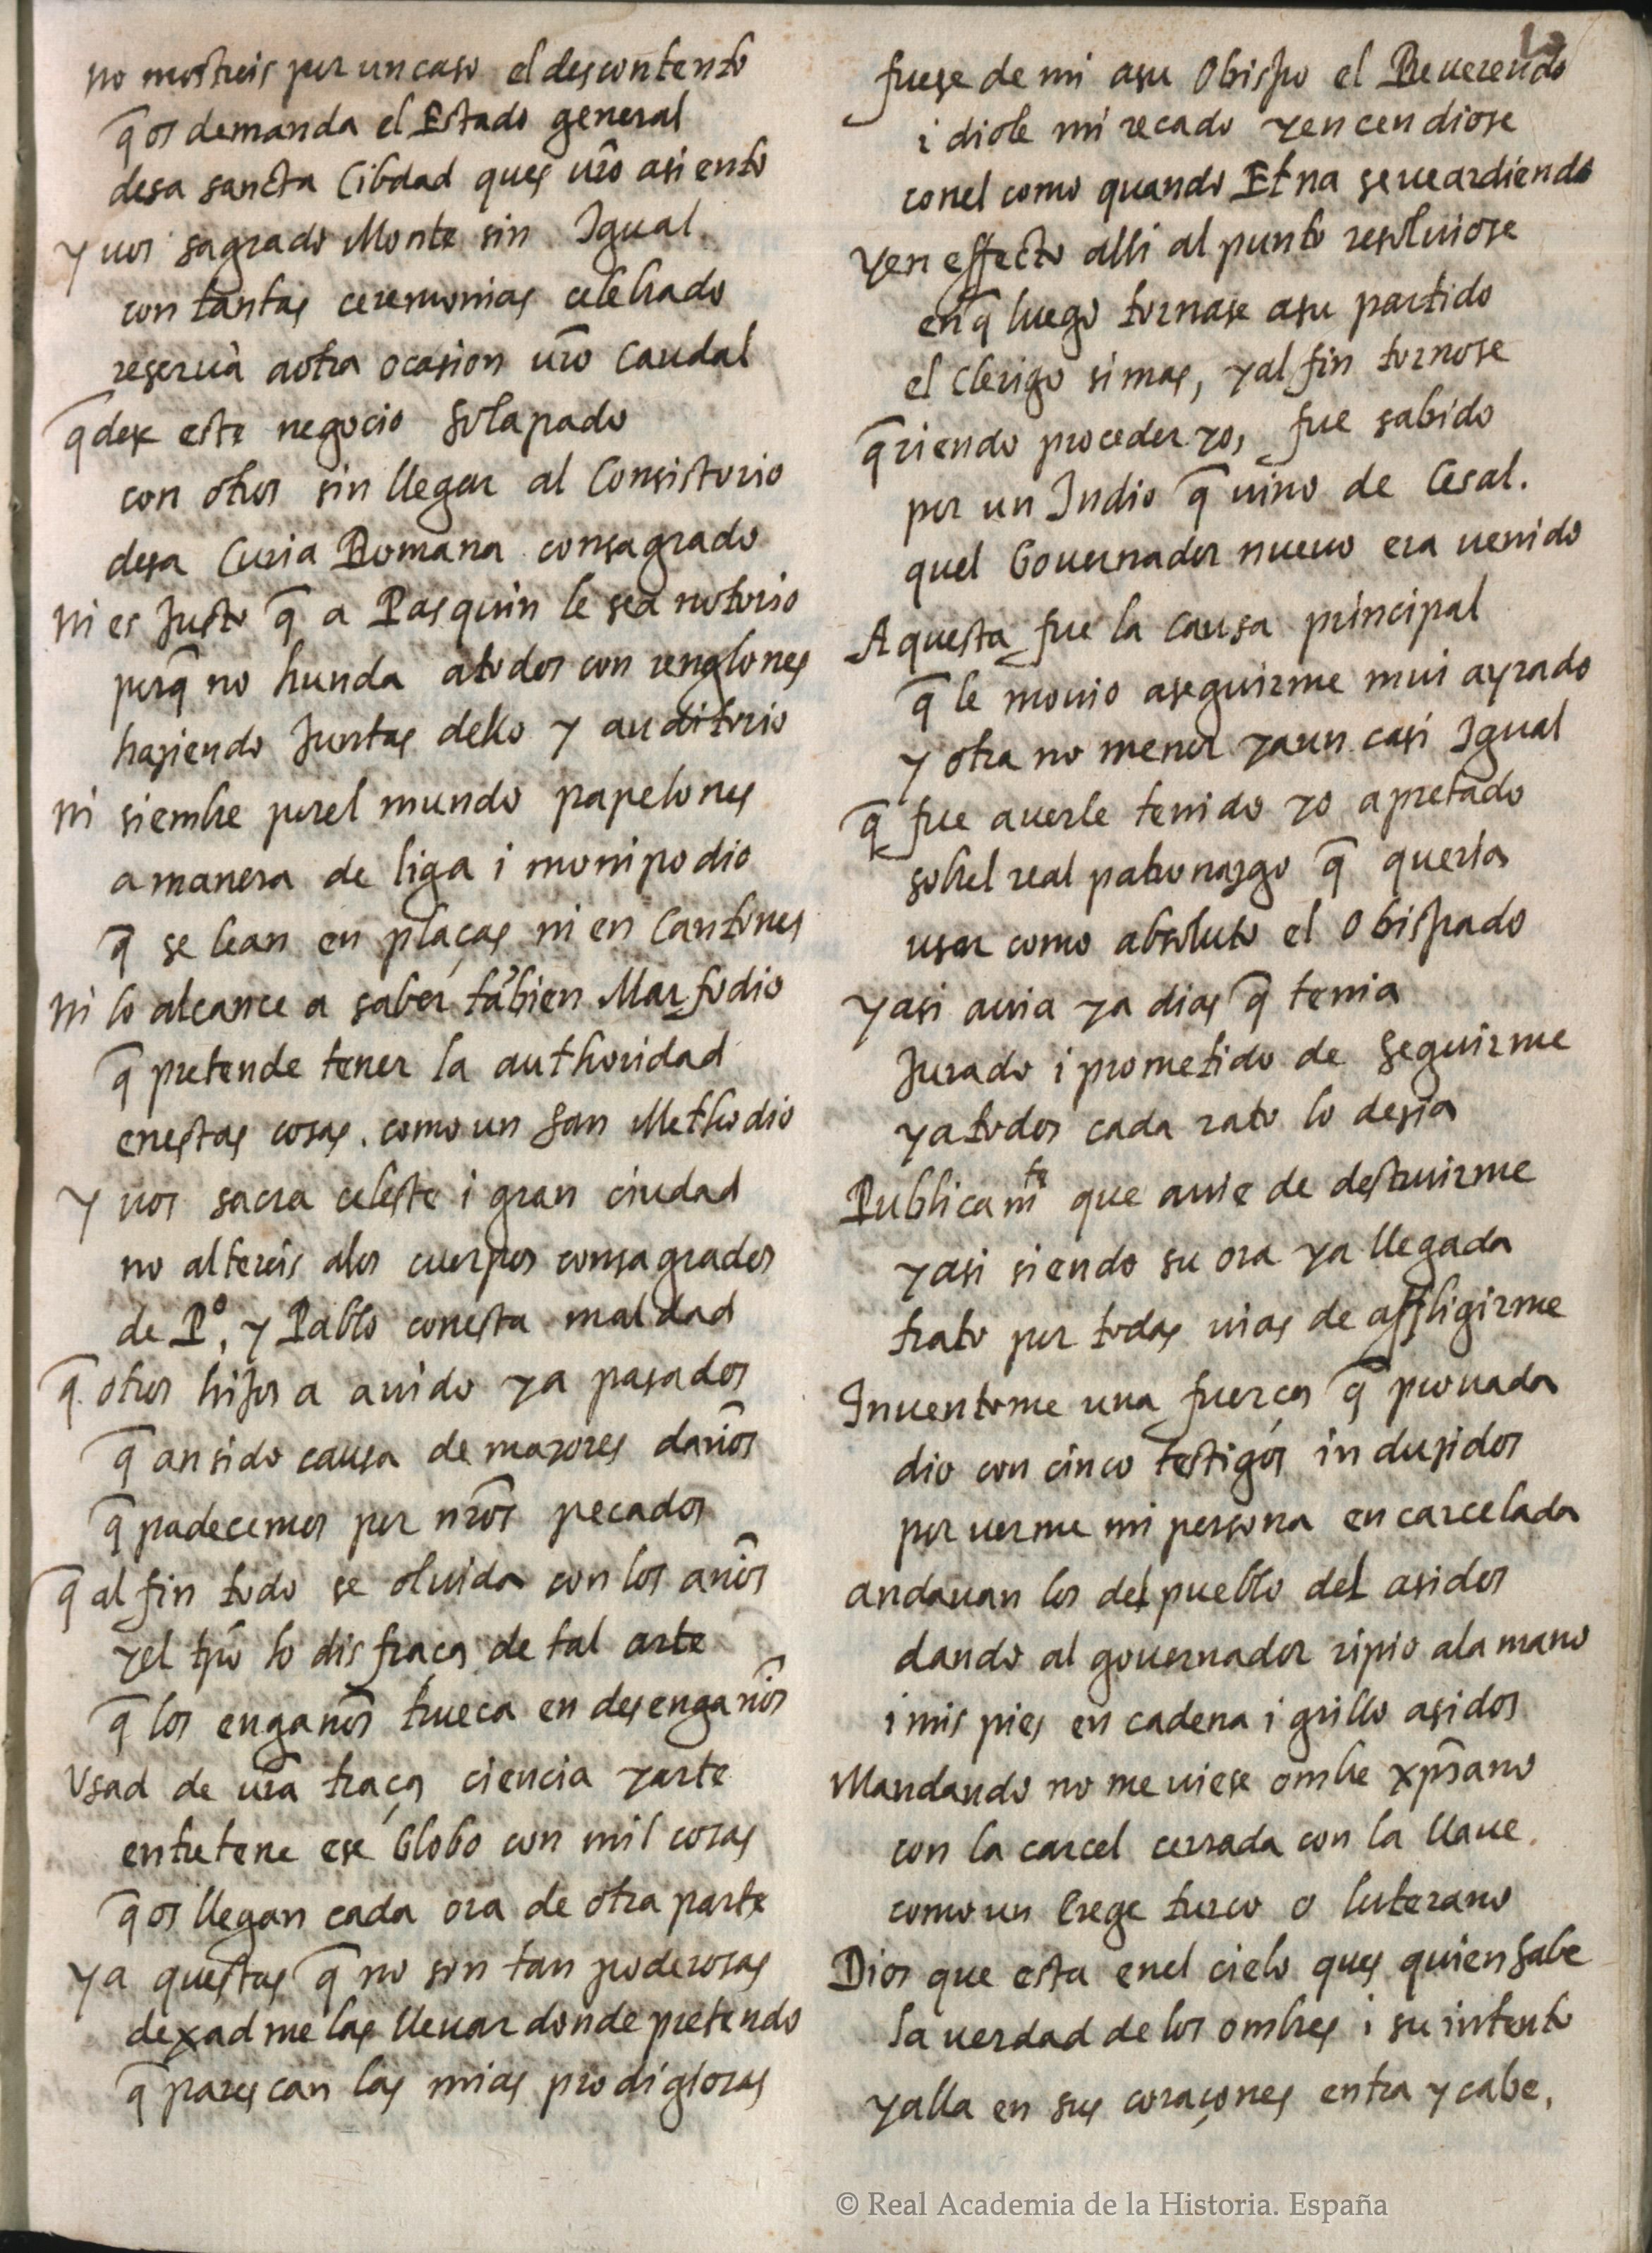 no mostreis por un caso el descontento
q̃ os demanda el Estado general
desa sancta Cibdad ques vr̃o asiento
y uos sagrado Monte sin Igual
con tantas ceremonias celebrado
reseruà a otra ocasion vr̃o caudal
q̃ dexe este negocio solapado
con otros sin llegar al Consistorio
desa Curia Romana consagrado
ni es Justo q̃ a Pasquin le sea notorio
porq̃ no hunda a todos con renglones
haziendo Juntas dello y auditorio
ni siembre porel mundo papelones
a manera de liga i monipodio
q̃ se lean en plaças ni en Cantones
ni lo alcance a saber tãbien Marfodio
q̃ pretende tener la authoridad
enestas cosas. como un San Methodio
y uos sacra celeste i gran ciudad
no altereis alos cuerpos consagrados
de Pº. y Pablo conesta maldad
q̃ otros hijos a auido ya pasados
q̃ an sido causa de mayores daños
q̃ padecemos por nr̃os pecados
q̃ al fin todo se oluida con los años
yel tp̃o lo disfraça de tal arte
q̃ los engaños trueca en desengaños
Vsad de vr̃a traça ciencia yarte
entretene ese Globo con mil cosas
q̃ os llegan cada ora de otra parte
ya questas q̃ no son tan poderosas
dexadme las lleuar donde pretendo
q̃ parescan las mias prodigiosas
fuese de mi asu Obispo el Reuerendo
i diole mi recado yencendiose
conel como quando Etna se ue ardiendo
yen effecto alli al punto resoluiose
enq̃ luego tornase asu partido
el clerigo simas, yal fin tornose
q̃riendo proceder yo, fue sabido
por un Indio q̃ uino de Cesal.
quel Gouernador nueuo era uenido
Aquesta fue la causa principal
q̃ le mouio aseguirme mui ayrado
y otra no menor yaun casi Igual
q̃ fue auerle tenido yo apretado
sobrel real patronazgo q̃ queria
usar como absoluto el Obispado
yasi auia ya dias q̃ tenia
Jurado i prometido de seguirme
yatodos cada rato lo desia
Publicamte que auie de destruirme
yasi siendo su ora ya llegada
trato por todas uias de affligirme
Inuentome una fuerça q̃ prouada
dio con cinco testigos induzidos
por uerme mi persona encarcelada
andauan los del pueblo del asidos
dando al gouernador ripio ala mano
i mis pies en cadena i grillo asidos
Mandando no me uiese ombre xp̃iano
con la carcel cerrada con la llaue.
como un Erege turco o luterano
Dios que esta enel cielo ques quien sabe
la uerdad de los ombres i su intento
yalla en sus coraçones entra y cabe,
© Real Academia de la Historia. España